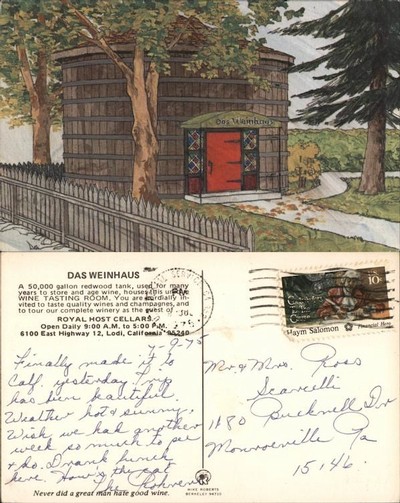 Das Weinhaus
DAS WEINHAUS
A 50,000 gallon redwood tank, used for many
years to store and age wine, houses this unique
WINE TASTING ROOM. You are cordially in-
vited to taste quality wines and champagnes, and
to tour our complete winery as the guest of
ROYAL HOST CELLARS
Open Daily 9:00 A.M. to 5:00 P.M.
6100 East Highway 12, Lodi, California 95240
PM
JUL
10c
Haym Salomon
Financial Hero
9-75
Finally made it to
Calif. yesterday. Trip
has been beautiful.
Weather hot & sunny.
Wish we had another
week so much to see
& do. Drank lunch
here. How's the cat
The
Never did a great man hate good wine.
Mr. & Mrs. Ross
Scarcelli
1180 Bucknell Dr
Monroeville Pa
15146
MIKE ROBERTS
BERKELEY 94710